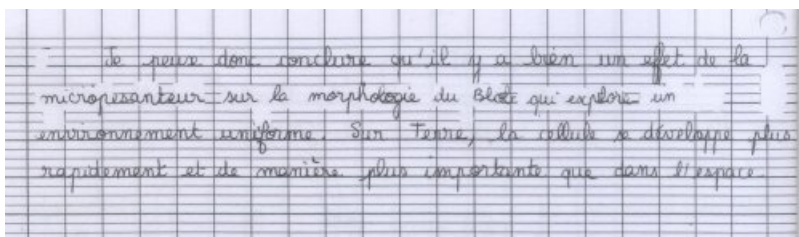 Je peux donc conclure qu'il y a bien un effet de la
micropesanteur sur la morphologie du Blob qui explore un
environnement uniforme. Sur Terre, la cellule se développe plus
rapidement et de manière plus importante que dans l'espace.